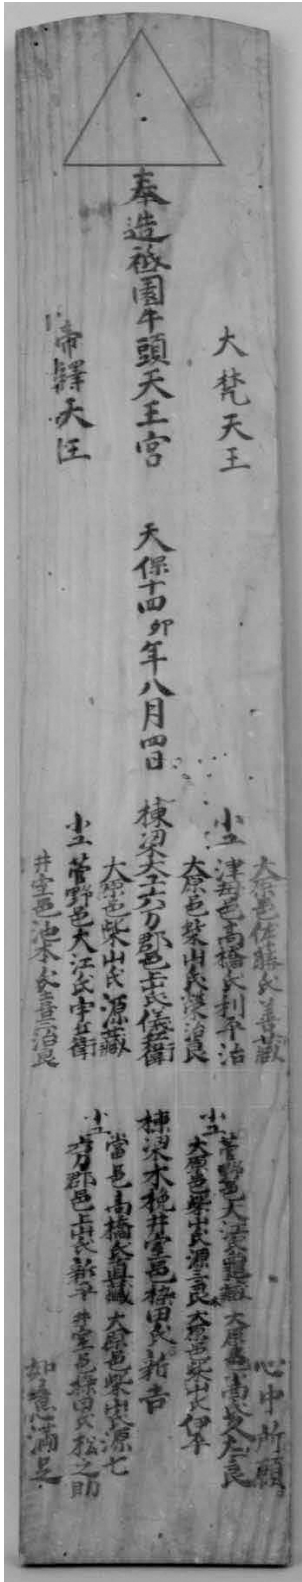 大梵天王
奉造祇園牛頭天王宮
帝釋天王
天保十四卯年八月四日
大原邑佐藤氏善蔵
小工 津毎邑高橋氏利平治
大原邑柴山氏榮治良
棟梁 万郡邑上氏儀兵衛
大原邑柴山氏源蔵
小工 菅野邑大江氏宇兵衛
井堂邑池本
心中所願
菅野邑大
小工 大原邑柴山氏源三良 大原邑柴山氏伊平
棟梁木挽井堂邑梅田氏新吉
當邑高橋氏直蔵 大原邑柴山氏源七
小工 万郡邑上山氏新平 井堂邑梅田氏松之助
如意満足